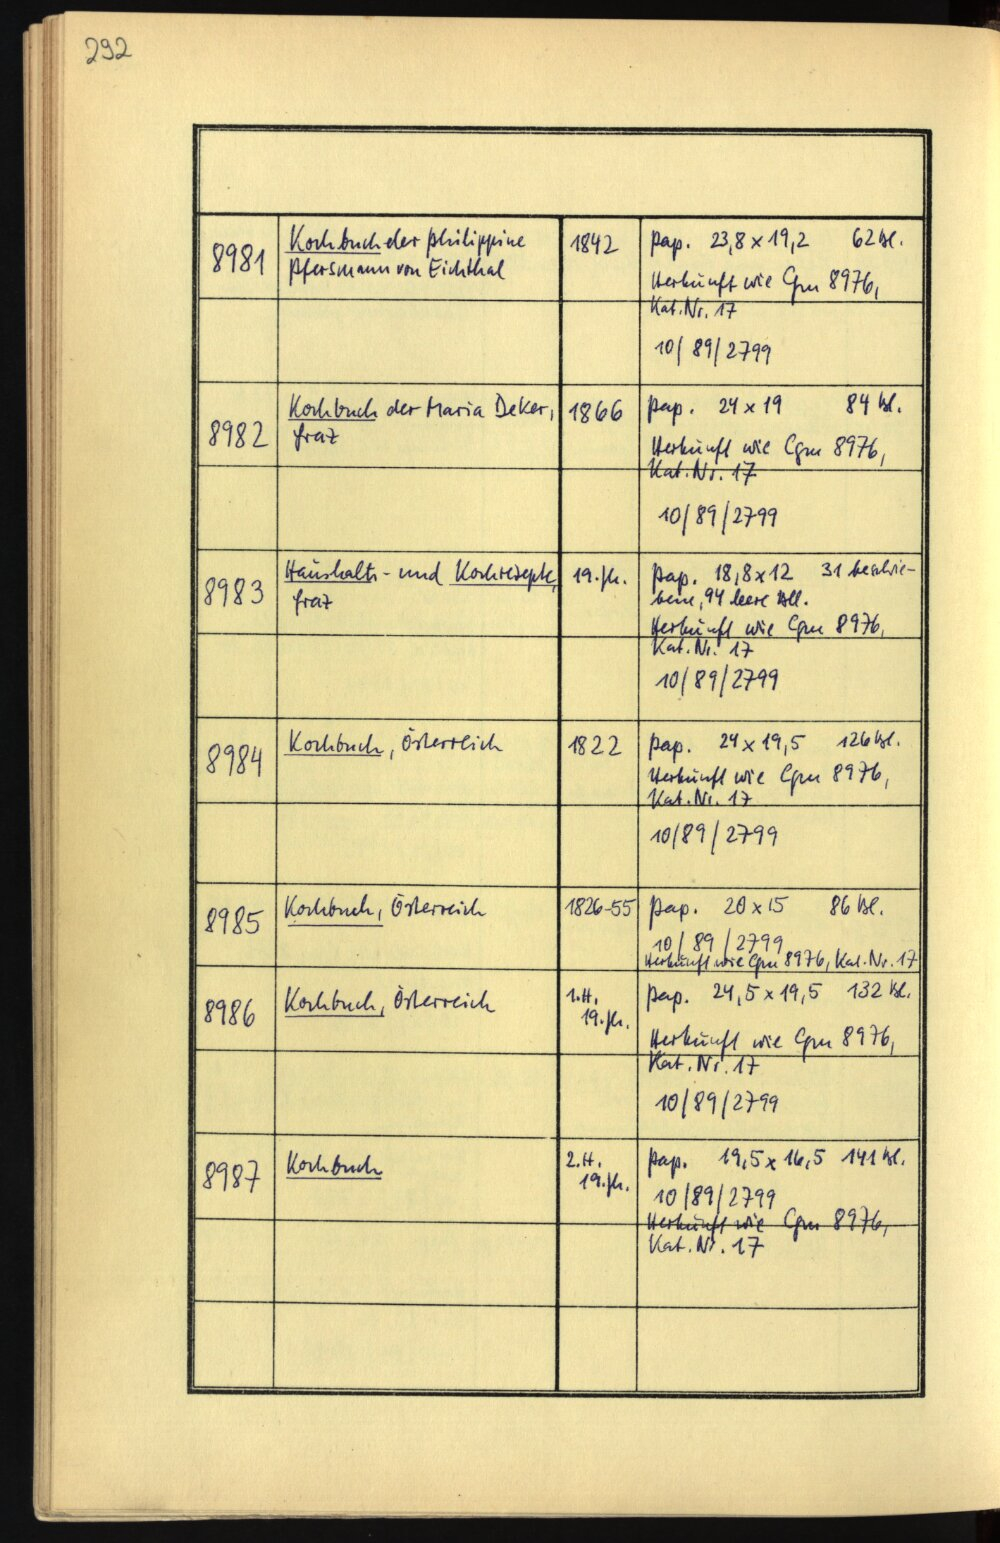 292
8981
Kochbuch der Philippine
Pfersmann von Eichthal
1842
Pap. 23,8 x 19,2 62 Bl.
Herkunft wie Cgm 8976,
Kat. Nr. 17
10/89/2799
8982
Kochbuch der Maria Deker,
Graz
1866
Pap. 24 x 19 84 Bl.
Herkunft wie Cgm 8976,
Kat. Nr. 17
10/89/2799
8983
Haushalts- und Kochrezepte,
Graz
19. Jh.
Pap. 18,8 x 12 31 beschrie-
bene, 94 leere Bll.
Herkunft wie Cgm 8976,
Kat. Nr. 17
10/89/2799
8984
Kochbuch, Österreich
1822
Pap. 24 x 19,5 126 Bl.
Herkunft wie Cgm 8976,
Kat. Nr. 17
10/89/2799
8985
Kochbuch, Österreich
1826-55
Pap. 20 x 15 86 Bl.
10/89/2799
Herkunft wie Cgm 8976, Kat. Nr. 17
8986
Kochbuch, Österreich
1. H.
19. Jh.
Pap. 24,5 x 19,5 132 Bl.
Herkunft wie Cgm 8976,
Kat. Nr. 17
10/89/2799
8987
Kochbuch
2. H.
19. Jh.
Pap. 19,5 x 16,5 141 Bl.
10/89/2799
Herkunft wie Cgm 8976,
Kat. Nr. 17